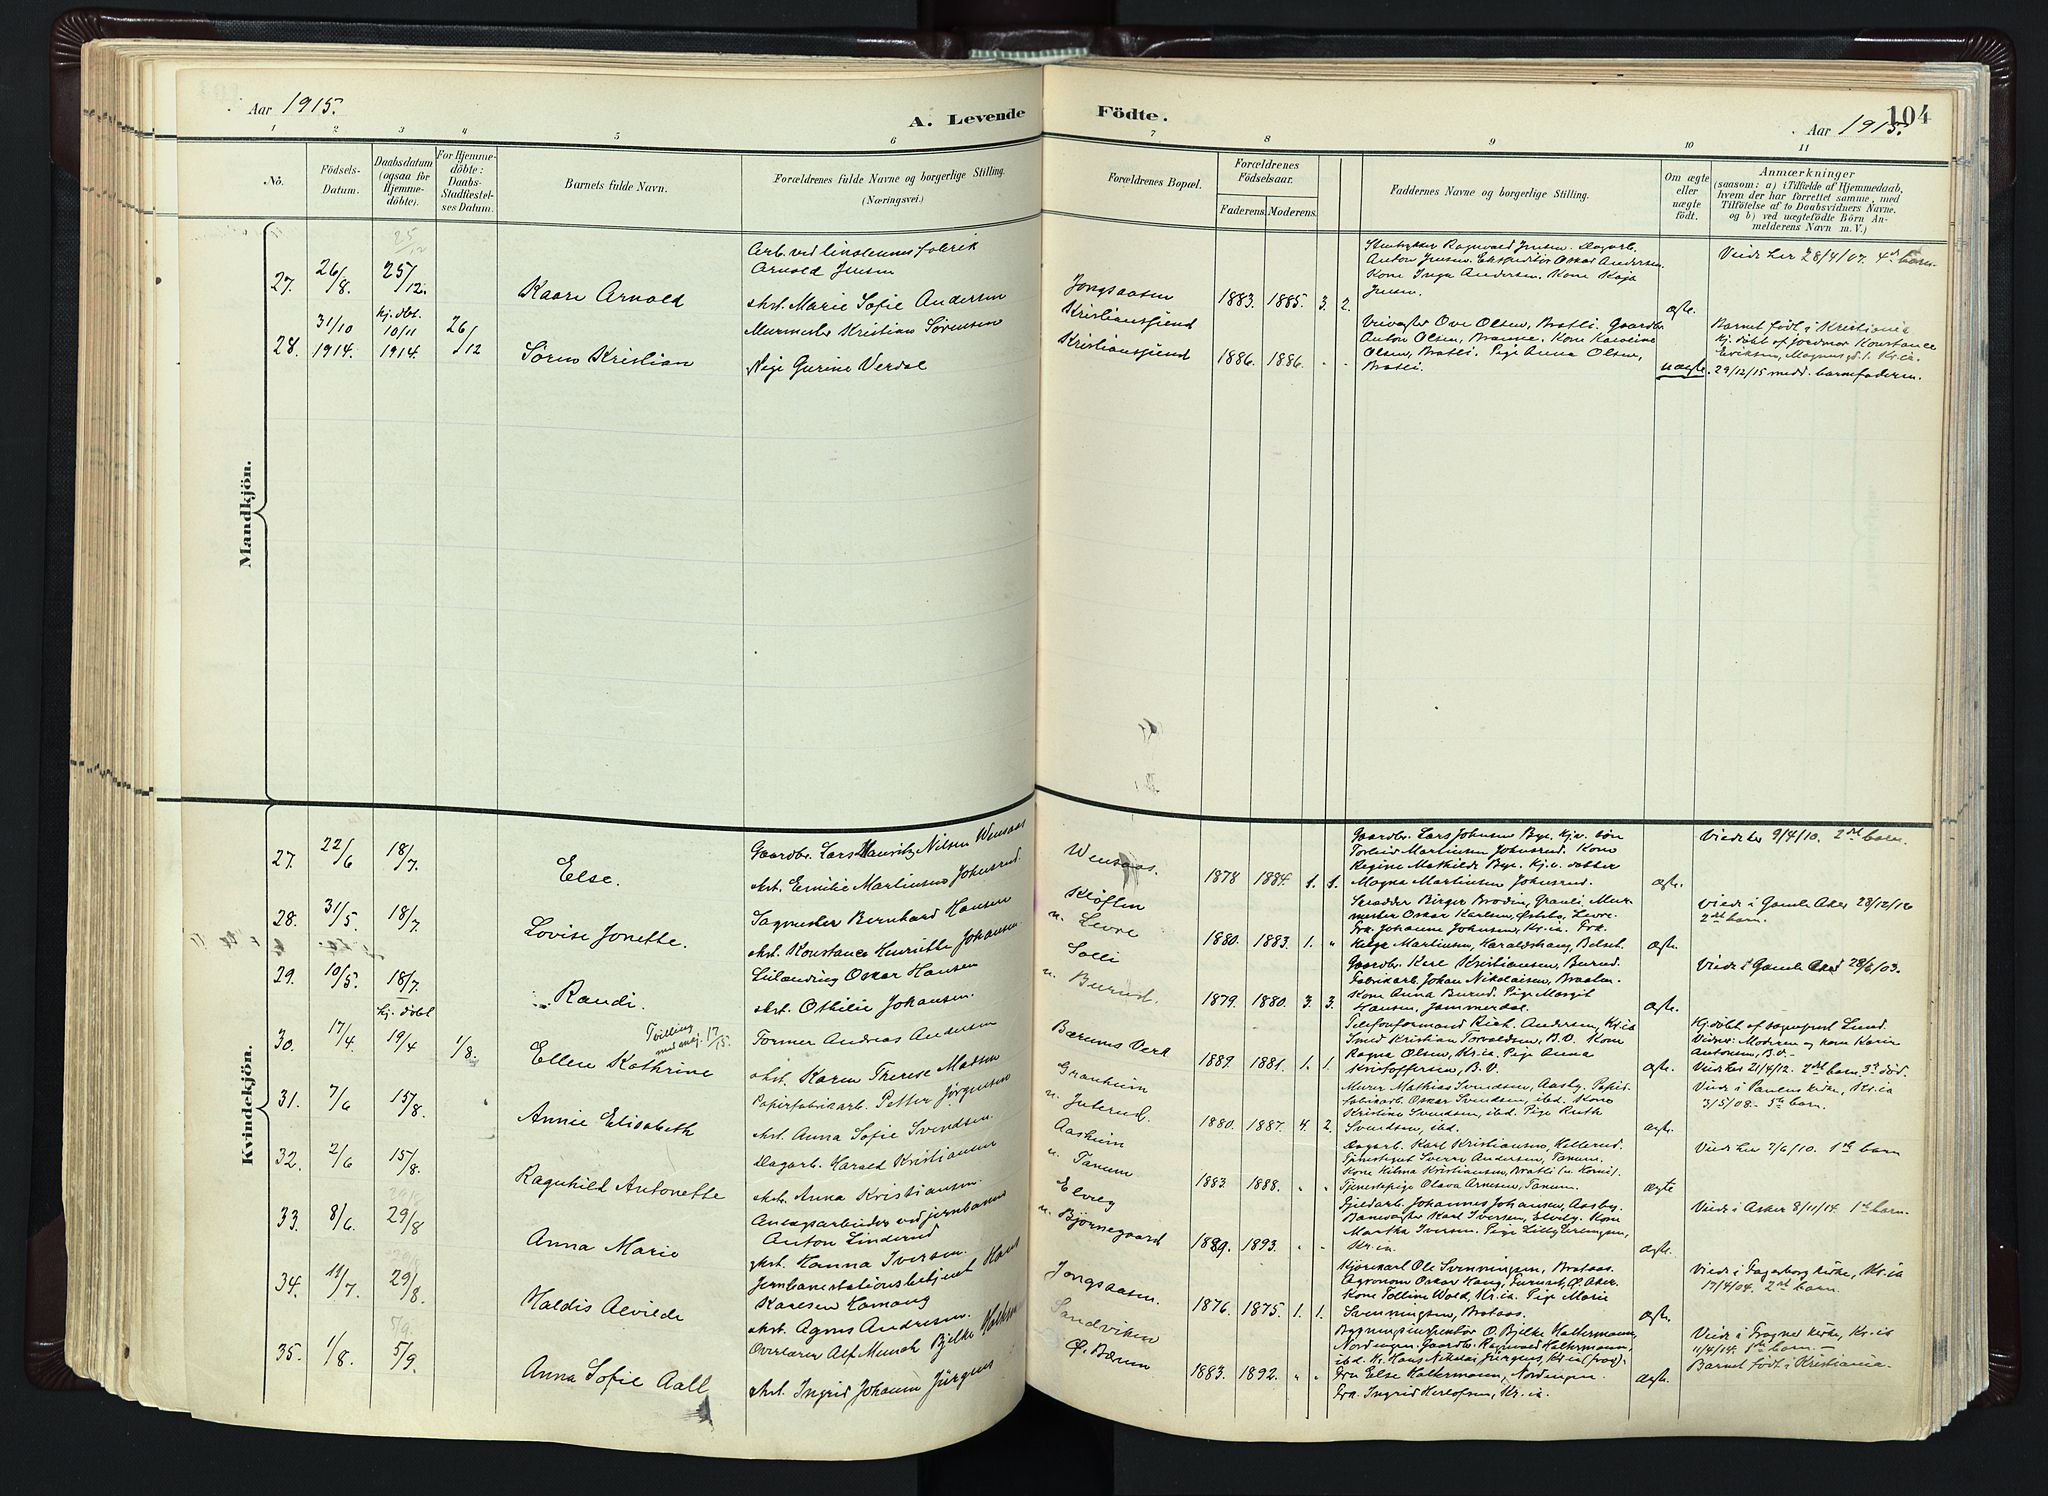 Aar 1915.
A. Levende
Födte.
104
Aar 1915.
1 2 3 4 5 6 7 8 9 10 11
No.
Födsels-
Datum.
Daabsdatum
(ogsaa for
Hjemme-
döbte).
For Hjemme-
döbte:
Daabs-
Stadfæstel-
ses Datum.
Barnets fulde Navn.
Forældrenes fulde Navne og borgerlige Stilling.
(Næringsvei.)
Forældrenes Bopæl.
Forældrenes
Födselsaar.
Faderens. Moderens.
Faddernes Navne og borgerlige Stilling.
Om ægte
eller
uægte
født.
Anmærkninger
(saasom: a) i Tilfælde af Hjemmedaab,
hvem der har forrettet samme, med
Tilföielse af to Daabsvidners Navne.
og b) ved uægtefödte Börn An-
melderens Navn m. V.)
Mandkjön.
27.
26/8.
25/12.
Kaare Arnold
Arnold Jensen
Hst. Marie Sofie Andersen
Jongsaasen
1883. 1885. 3. 2.
Stenhykker Ragnvald Jensen. Dagarb.
Anton Jensen. Ekspeditör Oskar Andersen.
Kone Inga Andersen, Kone Kaja
Jensen.
ægte.
Viede her 28/4/07. 4de barn.
28.
31/10
1914.
hj. döbt.
10/11
1914.
26/12
Sören Kristian
Murmester Kristian Sørensen
Pige Gurine Verdal
Kristiansfjend
Kristiansfjend
1886. 1886. - -
Veivogter Ove Olsen, Bratli. Gaardbr.
Anton Olsen, Kone Karoline
Olsen, Bratli. Pige Anna Olsen,
Bratli.
uægte.
Barnet født i Kristiania
hj. döbt af Jordmor Konstance
Eriksen, Kr.ia.
29/12/15 medd. barnefaderen.
Kvindekjön.
27.
22/6
18/7.
Else.
Gaardbr. Lars Hauritz Nilsen Wensaas
Hst. Emilie Martinsen Johnsrud.
Wensaas.
1878 1884. 1. 1.
Gaardbr. Lars Johnsen Bye. Hj.v. sön
Torleid Martinsen Johnsrud. Kone
Regine Mathilde Bye. Hj.v. datter
Magna Martinsen Johnsrud.
ægte.
Viede her 9/4/10. 2det barn.
28.
31/5.
18/7.
Lovise Jonette.
Sagmester Bernhard Hansen
Hst. Konstance Henriette Johansen
Kløften
u. Levre
1880. 1883. 1. "
Skrædder Birger Brodin, Granli. Mur-
mester Oskar Karlsen, Østeby, Levre.
Frk. Johanne Johnsen, Kr.ia. Frk.
Helga Martinsen, Belset.
ægte.
Viede i Gamle Aker 28/12/12
2det barn.
29.
10/5.
18/7.
Randi.
Oskar Hansen
Hst. Othilie Johansen.
Solli
u. Burud.
1879. 1880. 3. 3.
Gaardbr. Karl Kristiansen, Burud.
Fabrikarb. Johan Nikolaisen, Braaten.
Kone Anna Burud. Pige Margit
Hansen, Jammerdal.
ægte.
Viede i Gamle Aker 28/6/03.
30.
17/4.
hj. döbt
19/4
1/8.
Ellen Kathrine
Tvilling
Former Andreas Andersen
Hst. Karen Therese Madsen
Bærums Verk
1889. 1881. 1. 1.
Telefonformand Rich. Andersen, Kr.ia
Smed Kristian Torvaldsen, B.V. Kone
Ragna Olsen, Kr.ia. Pige Anna
Kristoffersen, B.V.
ægte.
Hj.döbt af sogneprest Lund.
Vidner: Moderen og kone Karin
Antonsen, B.V. -
Viede her 21/4/12. 2det barn. 3de död.
31.
7/6
15/8.
Annie Elisabeth
Papirfabrikarb. Petter Jörgensen
Hst. Anna Sofie Svendsen.
Granheim
u. Juterud.
1880. 1887. 4. 2.
Murer Mathias Svendsen, Aasby. Papir-
fabrikarb. Oskar Svendsen, ibd. Kone
Kristine Svendsen, ibd. Pige Ruth
Svendsen, ibd.
ægte.
Viede i Paulus kirke, Kr.ia
3/5/08. - 5te barn.
32.
2/6
15/8.
Ragnhild Antonette
Dagarb. Harald Kristiansen
Hst. Anna Kristiansen.
Aasheim
u. Tanum
1883. 1888. " "
Dagarb. Karl Kristiansen,
Tjenestegut Sverre Andersen, Tanum.
Kone Hilma Kristiansen, Bratli
Tjenestepige Olava Arnesen, Tanum.
ægte
Viede her 7/6/10. 1ste barn
33.
8/6.
29/8
Anna Marie
Anlægsarbeider ved jernbanen
Anton Linderud
Hst. Hanna Iversen.
Elveg
u. Bjørnegaard
1889. 1893. " "
Johannes Johansen, Aasby.
Banevogter Karl Iversen, Elveby. Kone
Martha Iversen. Pige Lilly
Kr.ia.
ægte.
Viede i Asker 8/11/14. 1ste barn.
34.
11/7
29/8.
Haldis Alvilde
Jernbanestationsbetjent Hans
Karlsen Hornang
Hst. Agnes Andresen.
Jongsaasen.
1876. 1875. 1. 1.
Kjørekarl Ole Svenningsen, Brataas.
Agronom Oskar Haug, Furuset, Ø. Aker.
Kone Tolline Wold, Kr.ia. Pige Marie
Svenningsen, Brataas.
ægte.
Viede i Fagerborg kirke, Kr.ia
17/4/04. 2det barn.
35.
1/8.
5/9.
Anna Sofie Aall
Overlærer Alf Munch Bjelke Holtermann
Hst. Ingrid Johanne Jürgens
Sandviken
Ø. Bærum
1883. 1892. " "
Bygningsinspektør O. Bjelke Holtermann,
Nordingen. Gaardbr. Ragnvald Holtermann,
ibd. Hr. Hans Nikolai Jürgens, Kr.ia
Fru Else Holtermann, Nordingen.
Frk. Ingrid Herlofsen, Kr.ia.
ægte.
Viede i Frogner kirke, Kr.ia
11/4/14. 1ste barn. -
Barnet født i Kristiania.